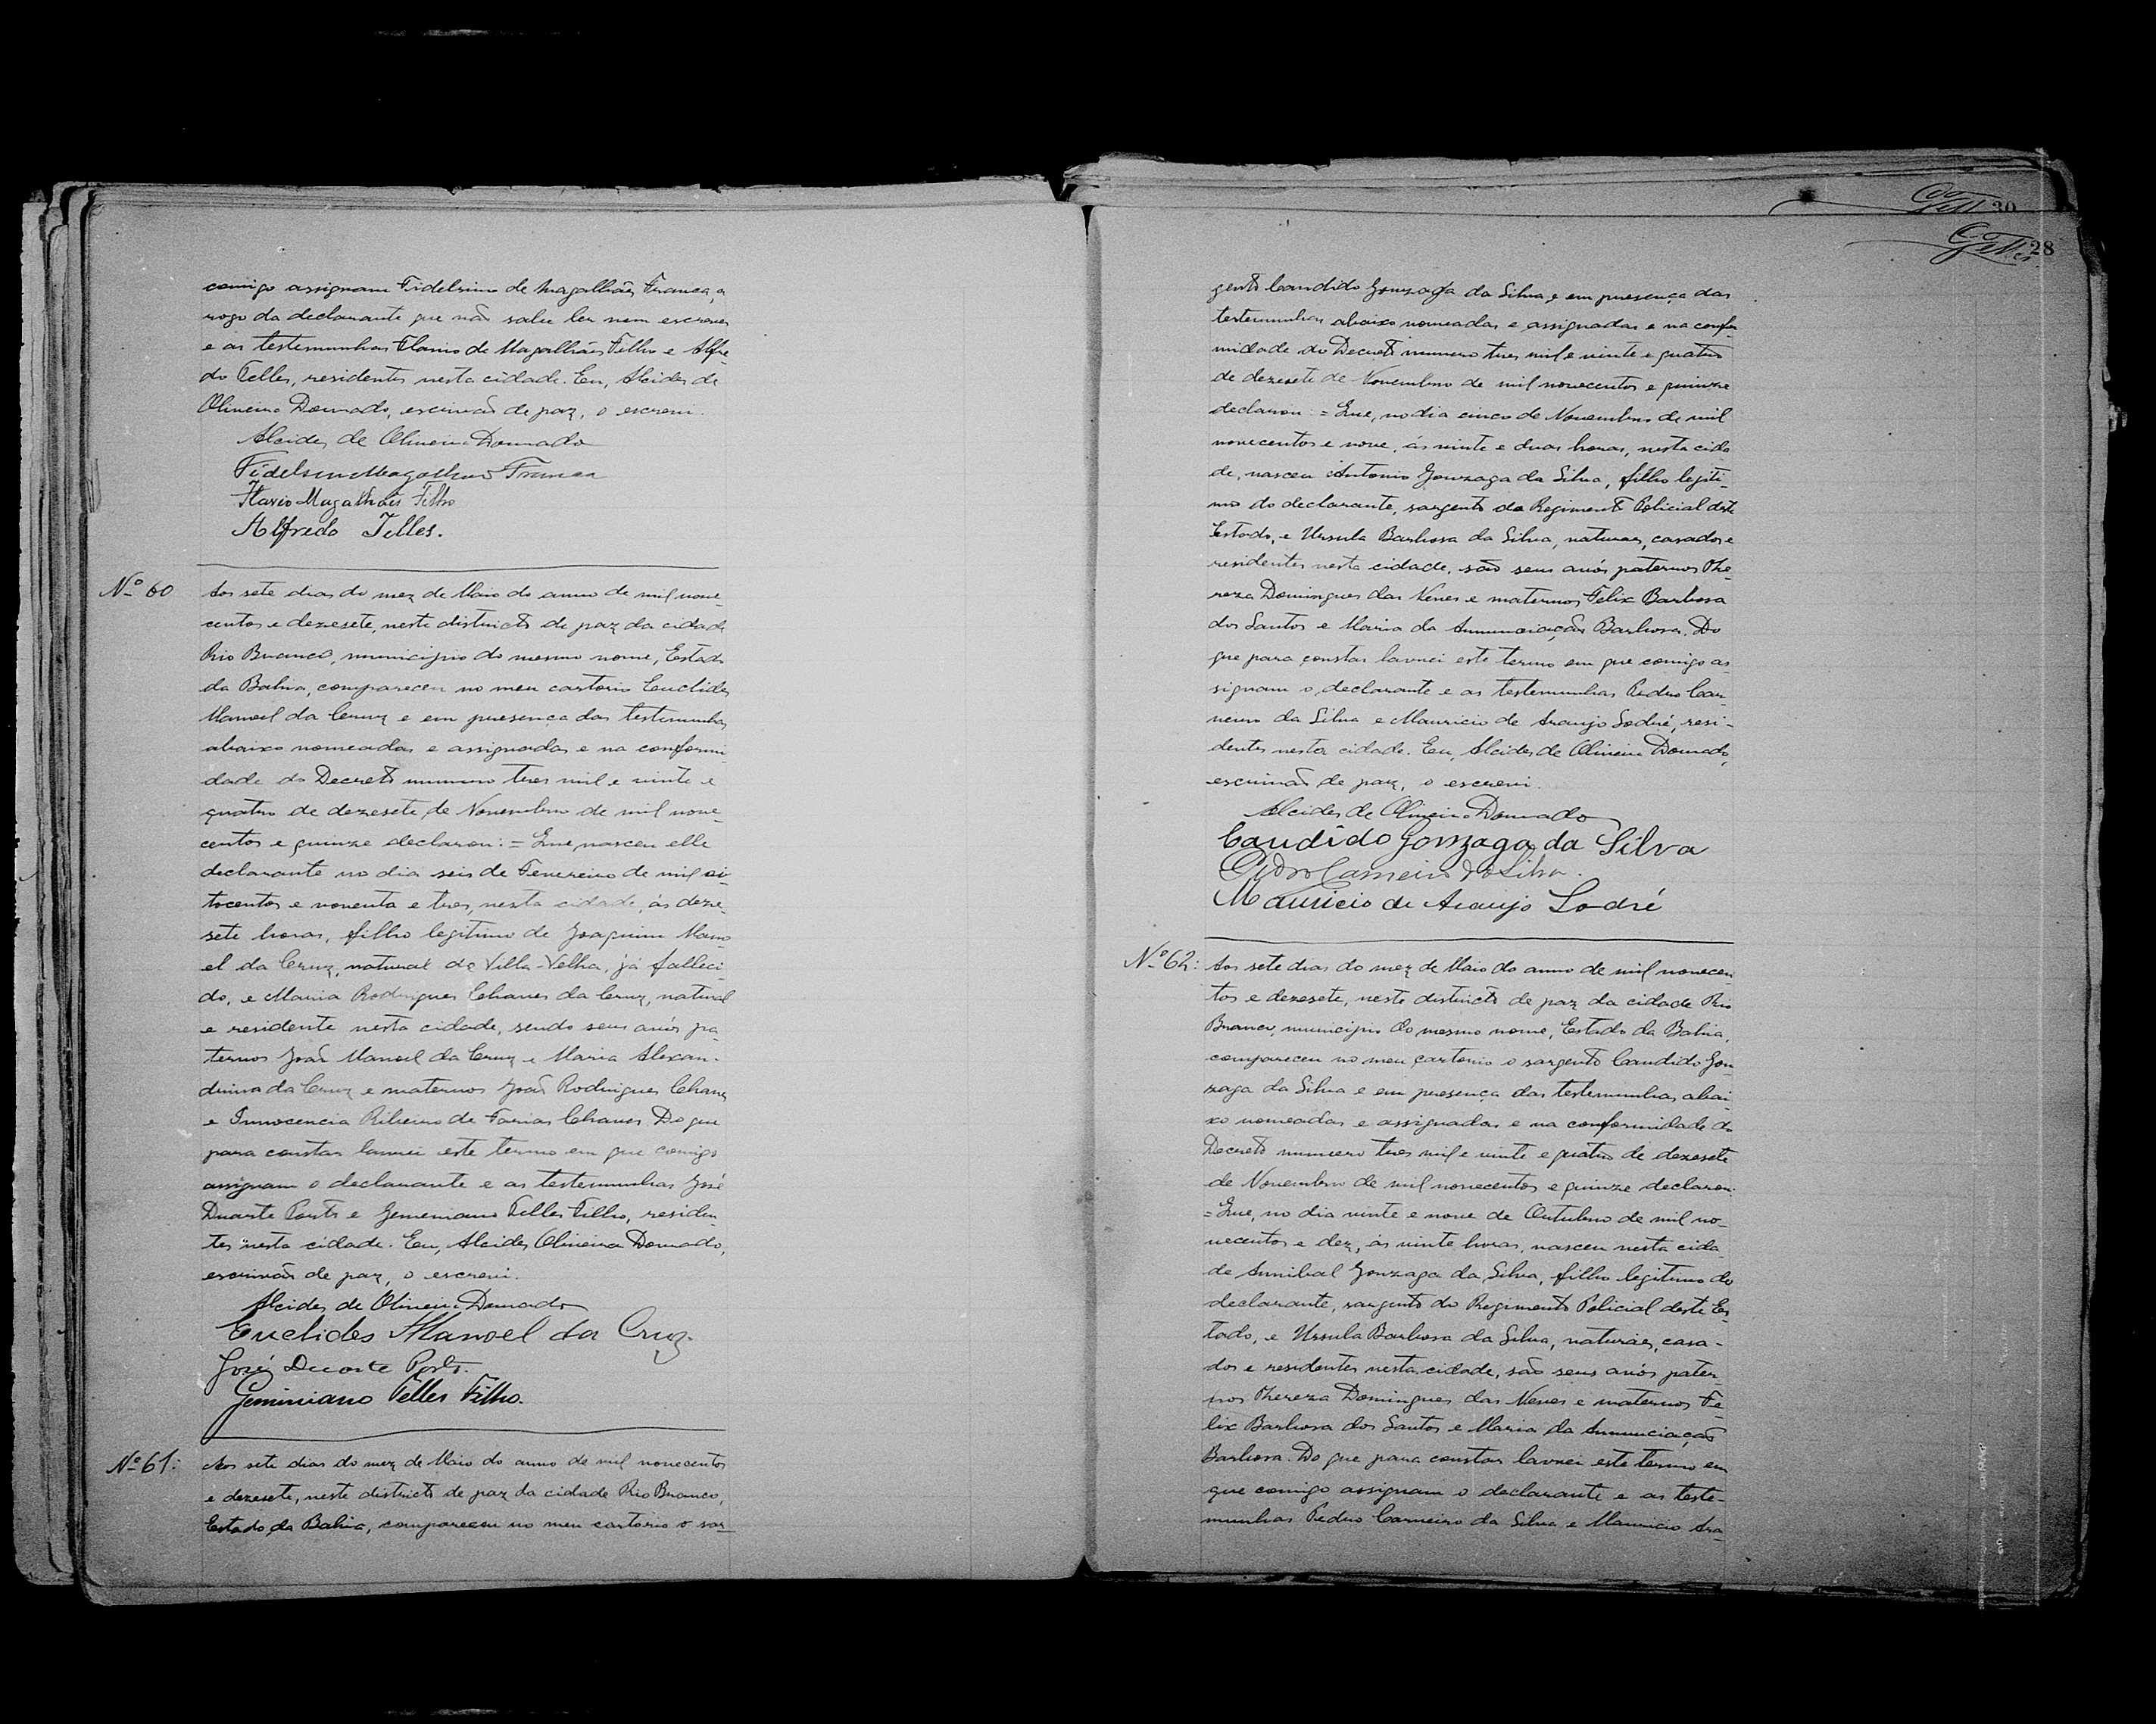 comigo assignam Fidelsino de Magalhães Franca, a
rogo da declarante que não sabe ler nem escrever
e as testemunhas Flavio de Magalhães Filho e Alfre-
do Telles, residentes nesta cidade. Eu, Alcides de
Oliveira Dourado, escrivão de paz, o escrevi.
Alcides de Oliveira Dourado
Magalhães Franca
Flavio Magalhães Filho
Alfredo Telles.
Nº 60
Aos sete dias do mez de Maio do anno de mil nove-
centos e dezesete, neste districto de paz da cidade
Rio Branco, municipio do mesmo nome, Estado
da Bahia, compareceu no meu cartorio Euclides
Manoel da Cruz e em presença das testemunhas
abaixo nomeadas e assignadas e na conformi-
dade do Decreto numero tres mil e vinte e
quatro de dezesete de Novembro de mil nove-
centos e quinze declarou: = Que nasceu elle
declarante no dia seis de Fevereiro de mil oi-
tocentos e noventa e tres, nesta cidade, ás deze-
sete horas, filho legitimo de Joaquim Mano-
el da Cruz, natural de Villa-Velha, já falleci-
do, e Maria Rodrigues Chaves da Cruz, natural
e residente nesta cidade, sendo seus avós pa-
ternos João Manoel da Cruz e Maria Alexan-
drina da Cruz e maternos João Rodrigues Chaves
e Innocencia Ribeiro de Farias Chaves. Do que
para constar lavrei este termo em que comigo
assignam o declarante e as testemunhas José
Duarte Porto e Gemeniano Telles Filho, residen-
tes nesta cidade. Eu, Alcides Oliveira Dourado,
escrivão de paz, o escrevi.
Alcides de Oliveira Dourado
Euclides Manoel da Cruz.
José Duarte Porto.
Geminiano Telles Filho.
Nº 61:
Aos sete dias do mez de Maio do anno de mil novecentos
e dezesete, neste districto de paz da cidade Rio Branco,
Estado da Bahia, compareceu no meu cartorio o sar-
30
28
gento Candido Gonzaga da Silva, e em presença das
testemunhas abaixo nomeadas e assignadas e na confor
midade do Decreto numero tres mil e vinte e quatro
de dezesete de Novembro de mil novecentos e quinze
declarou: = Que, no dia cinco de Novembro de mil
novecentos e nove, ás vinte e duas horas, nesta cida
de, nasceu Antonio Gonzaga da Silva, filho legiti-
mo do declarante, sargento do Regimento Policial deste
Estado, e Ursula Barbosa da Silva, naturaes, casados e
residentes nesta cidade, são seus avós paternos The-
reza Domingues das Neves e maternos Felix Barbosa
dos Santos e Maria da Annunciação Barbosa. Do
que para constar lavrei este termo em que comigo as
signam o declarante e as testemunhas Pedro Car-
neiro da Silva e Mauricio de Araujo Sodré, resi-
dentes nesta cidade. Eu, Alcides de Oliveira Dourado,
escrivão de paz, o escrevi.
Alcides de Oliveira Dourado
Candido Gonzaga da Silva
Pedro Carneiro da Silva.
Mauricio de Araujo Sodré
Nº 62:
Aos sete dias do mez de Maio do anno de mil novecen
tos e dezesete, neste districto de paz da cidade Rio
Branco, municipio do mesmo nome, Estado da Bahia,
compareceu no meu cartorio o sargento Candido Gon
zaga da Silva e em presença das testemunhas abai-
xo nomeadas e assignadas e na conformidade do
Decreto numero tres mil e vinte e quatro de dezesete
de Novembro de mil novecentos e quinze declarou:
= Que, no dia vinte e nove de Outubro de mil no-
vecentos e dez, ás vinte horas, nasceu nesta cida-
de Annibal Gonzaga da Silva, filho legitimo do
declarante, sargento do Regimento Policial deste Es-
tado, e Ursula Barbosa da Silva, naturaes, casa-
dos e residentes nesta cidade, são seus avós pater-
nos Thereza Domingues das Neves e maternos Fe-
lix Barbosa dos Santos e Maria da Annunciação
Barbosa. Do que para constar lavrei este termo em
que comigo assignam o declarante e as teste-
munhas Pedro Carneiro da Silva e Mauricio Ara